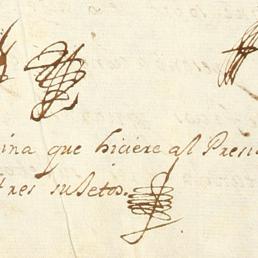 ina que hiciere al Presi
tres sugetos.